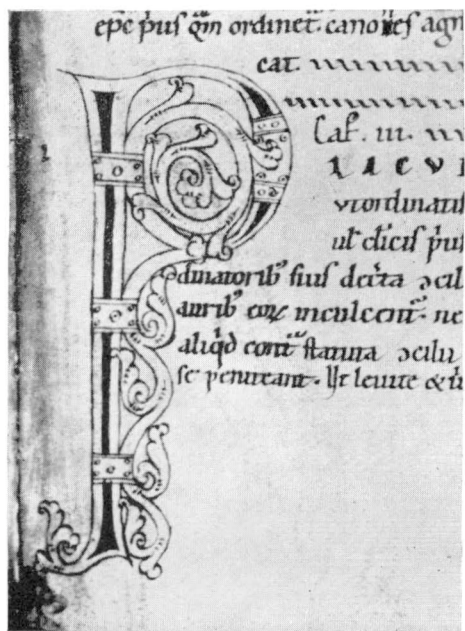 epc p̄us qm̄ ordinet᷑ canones agn
cat
Cap̄. iii.
LACVI
vt ordinatis
ul̄ cl̄icis p̄us
dinatorib; suis decr̄ta ↄcil
aurib; eoꝝ inculcent᷑. ne
aliqd̄ cont᷑ statuta ↄcilii
se peniteant. Ut leuite & ū